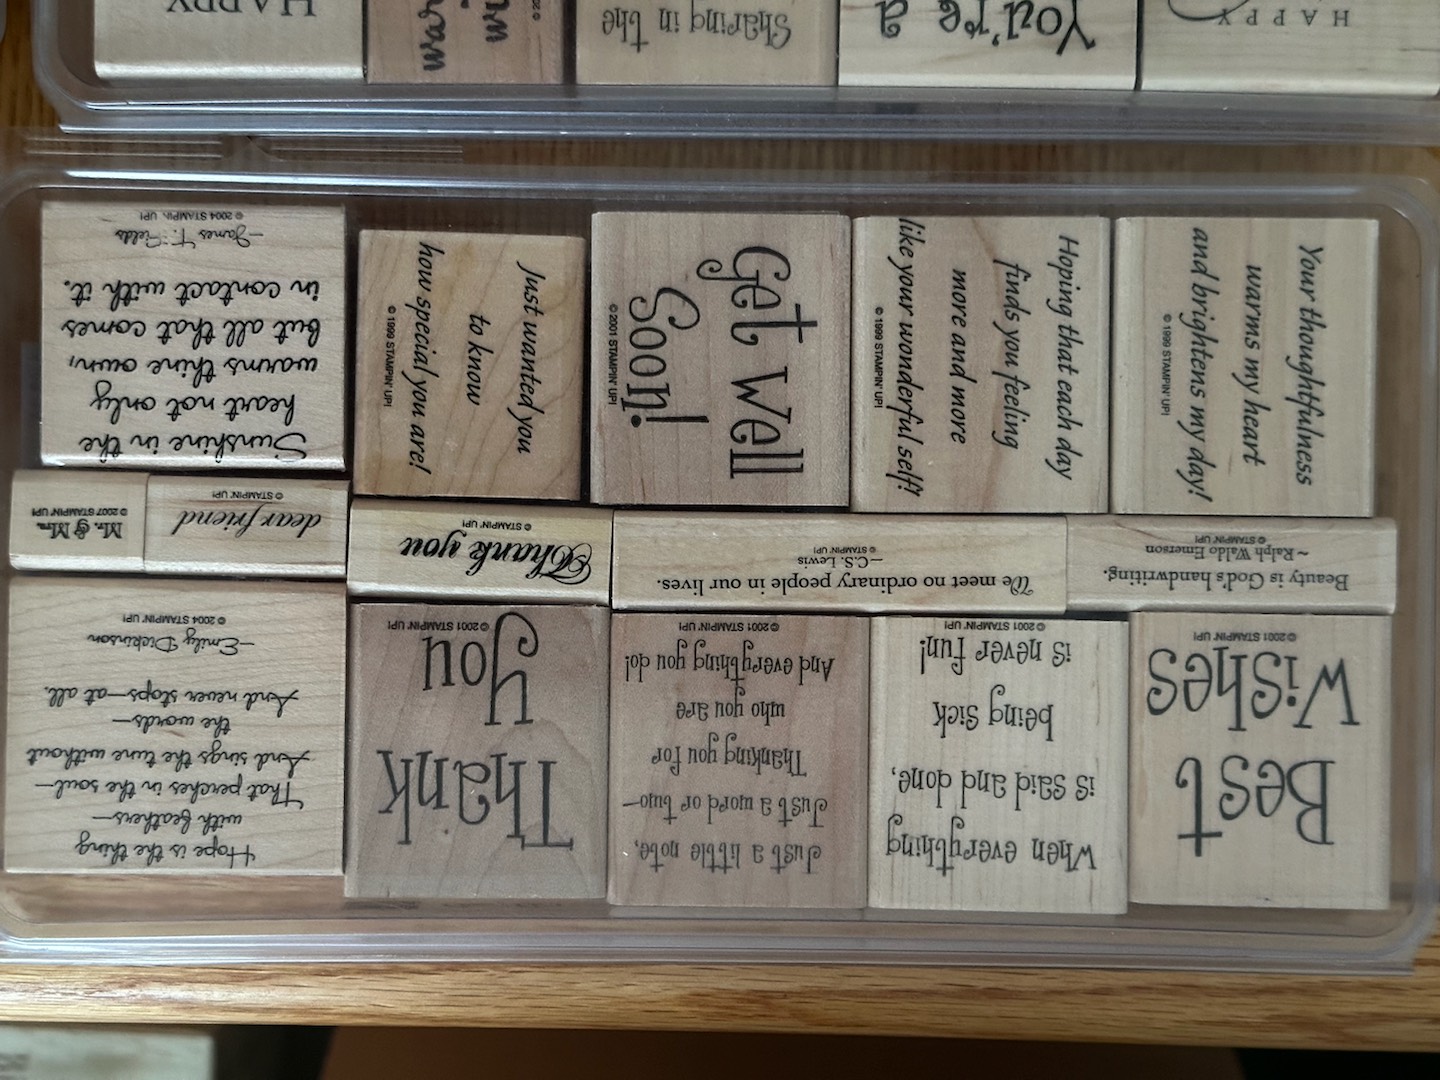 HAPPY
Sharing in the
You're
a
HAPPY
Sunshine in the
heart not only
warms thine own,
but all that comes
in contact with it.
—James T. Fields
© 2004 STAMPIN' UP!
Just wanted you
to know
how special you are!
© 1999 STAMPIN' UP!
Get Well
Soon!
© 2001 STAMPIN' UP!
Hoping that each day
finds you feeling
more and more
like your wonderful self!
© 1999 STAMPIN' UP!
Your thoughtfulness
warms my heart
and brightens my day!
© 1999 STAMPIN' UP!
Mr. & Mrs.
© 2007 STAMPIN' UP!
dear friend
© STAMPIN' UP!
Thank you
© STAMPIN' UP!
We meet no ordinary people in our lives.
—C.S. Lewis
© STAMPIN' UP!
Beauty is God's handwriting.
~ Ralph Waldo Emerson
© STAMPIN' UP!
Hope is the thing
with feathers—
That perches in the soul—
And sings the tune without
the words—
And never stops—at all.
—Emily Dickinson
© 2004 STAMPIN' UP!
Thank
you
© 2001 STAMPIN' UP!
Just a little note,
Just a word or two—
Thanking you for
who you are
And everything you do!
© 2001 STAMPIN' UP!
When everything
is said and done,
being sick
is never fun!
© 2001 STAMPIN' UP!
Best
Wishes
© 2001 STAMPIN' UP!